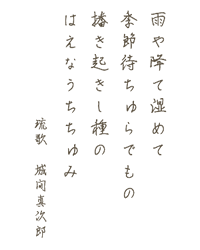 雨や降て湿めて
季節待ちゆらでもの
播き起きし種の
はえなうちちゆみ
琉歌 城間真次郎